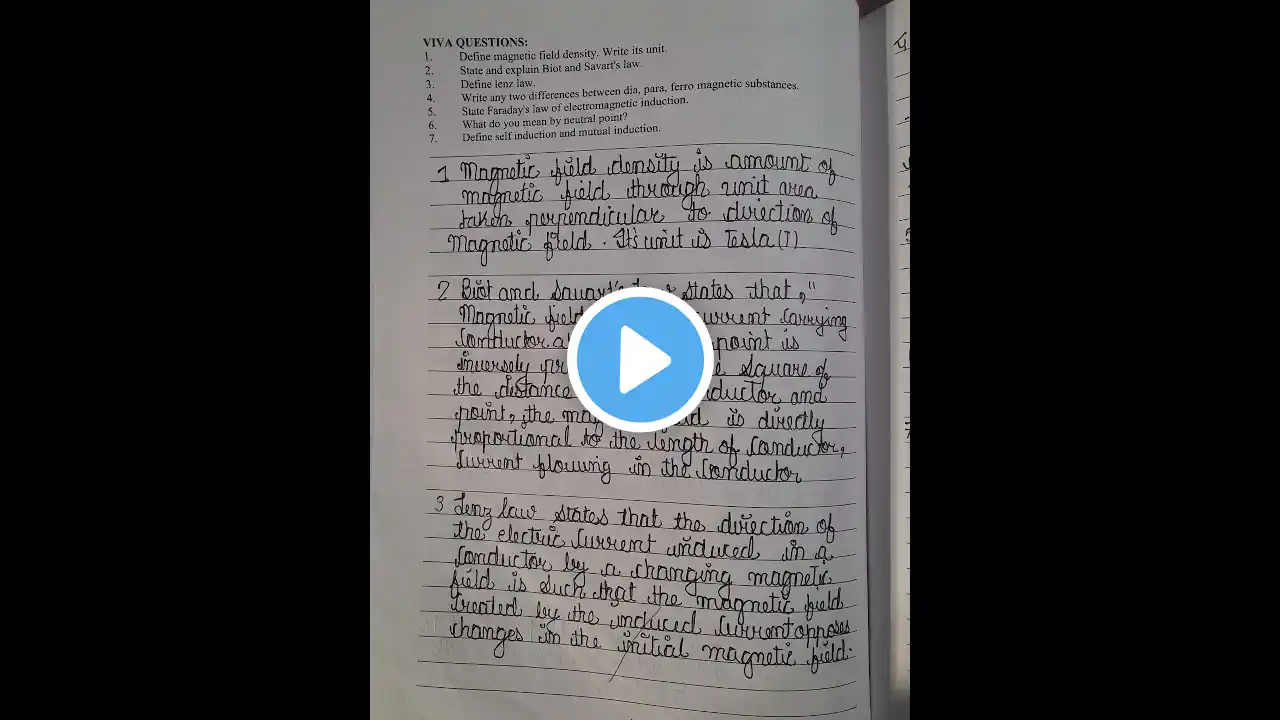 VIVA QUESTIONS:
1. Define magnetic field density. Write its unit.
2. State and explain Biot and Savart's law.
3. Define lenz law.
4. Write any two differences between dia, para, ferro magnetic substances.
5. State Faraday's law of electromagnetic induction.
6. What do you mean by neutral point?
7. Define self induction and mutual induction.
1 Magnetic field density is amount of
magnetic field through unit area
taken perpendicular to direction of
Magnetic field. It's unit is Tesla (T)
2 Biot and states that, "
Magnetic field current carrying
conductor point is
inversely square of
the distance and
point, the is directly
proportional to the length of conductor,
current flowing in the conductor
3 Lenz law states that the direction of
the electric current induced in a
conductor by a changing magnetic
field is such that the magnetic field
created by the induced current opposes
changes in the initial magnetic field.